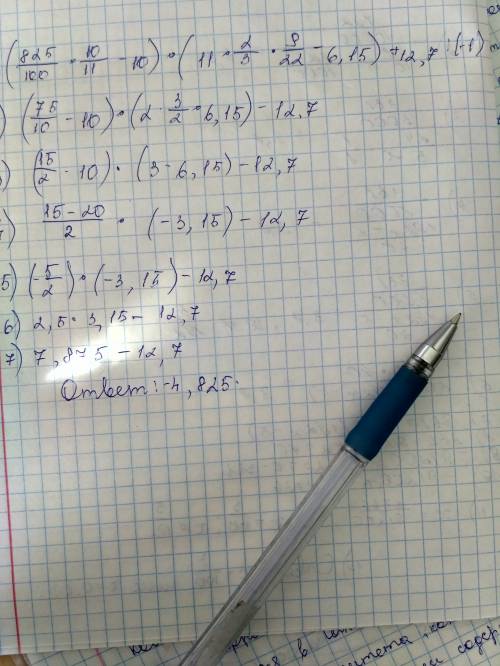 (825/100 · 10/11 - 10) · (11 · 2/3 · 9/22 - 6,15) + 12,7 : (-1)
) (75/10 - 10) · (2 · 3/2 - 6,15) - 12,7
) (15/2 - 10) · (3 - 6,15) - 12,7
) 15-20/2 · (-3,15) - 12,7
5) (-5/2) · (-3,15) - 12,7
6) 2,5 · 3,15 - 12,7
7) 7,875 - 12,7
Ответ: -4,825.